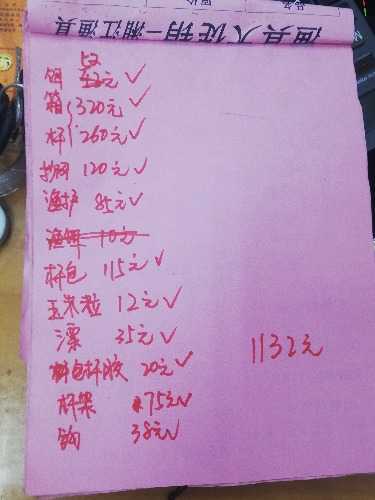 渔具大促销—湘江渔具
52
饵 元✓
箱 320元✓
杆 260元✓
抄网 120元✓
渔护 85元✓
10元
杆包 115元✓
玉米粒 12元✓
漂 35元✓
包杆胶 20元✓
杆架 75元✓
钩 38元✓
1132元